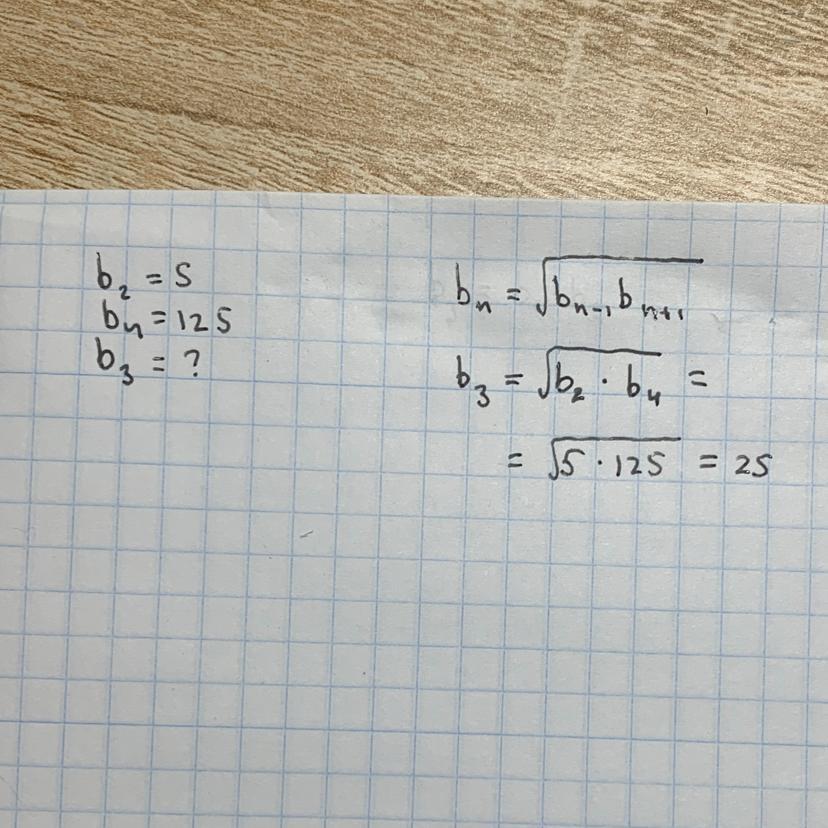 b₂ = 5
b₄ = 125
b₃ = ?
bₙ = √(bₙ₋₁ bₙ₊₁)
b₃ = √(b₂ · b₄) =
= √(5 · 125) = 25